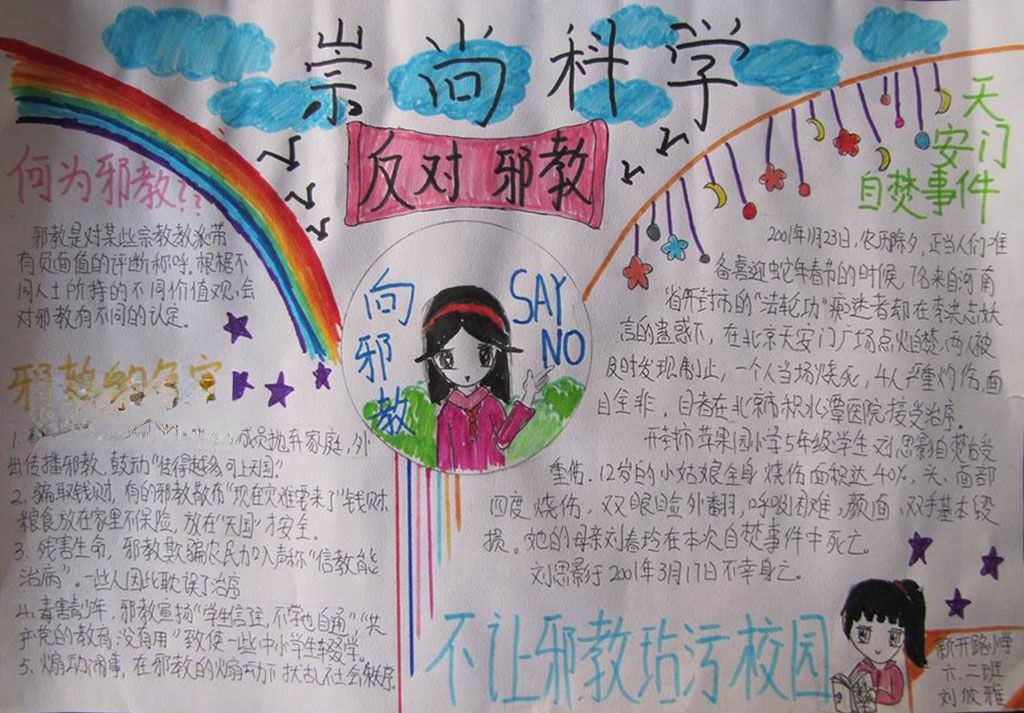 崇尚科学
反对邪教
何为邪教??
邪教是对某些宗教教派带
有负面值的评断称呼.根据不
同人士所持的不同价值观,会
对邪教有不同的认定。
邪教的危害
成员抛弃家庭,外
出传播邪教,鼓动"传得越多可上天国"
2.骗取钱财,有的邪教散布"现在灾难要来了"钱财
粮食放在家里不保险,放在"天国"才安全.
3.残害生命,邪教欺骗农民力口入声称"信教能
治病"。一些人因此耽误了治疗
4.毒害青少年,邪教宣扬"学生信主,不学也自通""共
产党的教育没有用"致使一些中小学生辍学。
5.煽动闹事,在邪教的煽动下扰乱社会秩序.
向邪教
SAY
NO
天
安门
自焚事件
2001年1月23日,农历除夕,正当人们准
备喜迎蛇年春节的时候,7名来自河南
省开封市的"法轮功"痴迷者却在李洪志妖
言的蛊惑下,在北京天安门广场点火自焚,两人被
及时发现制止,一个人当场烧死,4人严重灼伤,面
目全非,目者在北京市积水潭医院接受治疗。
开封市苹果园小学5年级学生刘思影自焚后受
重伤.12岁的小姑娘全身烧伤面积达40%,头、面部
四度烧伤,双眼睑外翻,呼吸困难,颜面、双手基本毁
损。她的母亲刘春玲在本次自焚事件中死亡。
刘思影于2001年3月17日不幸身亡。
不让邪教玷污校园
新开路小学
六.二班